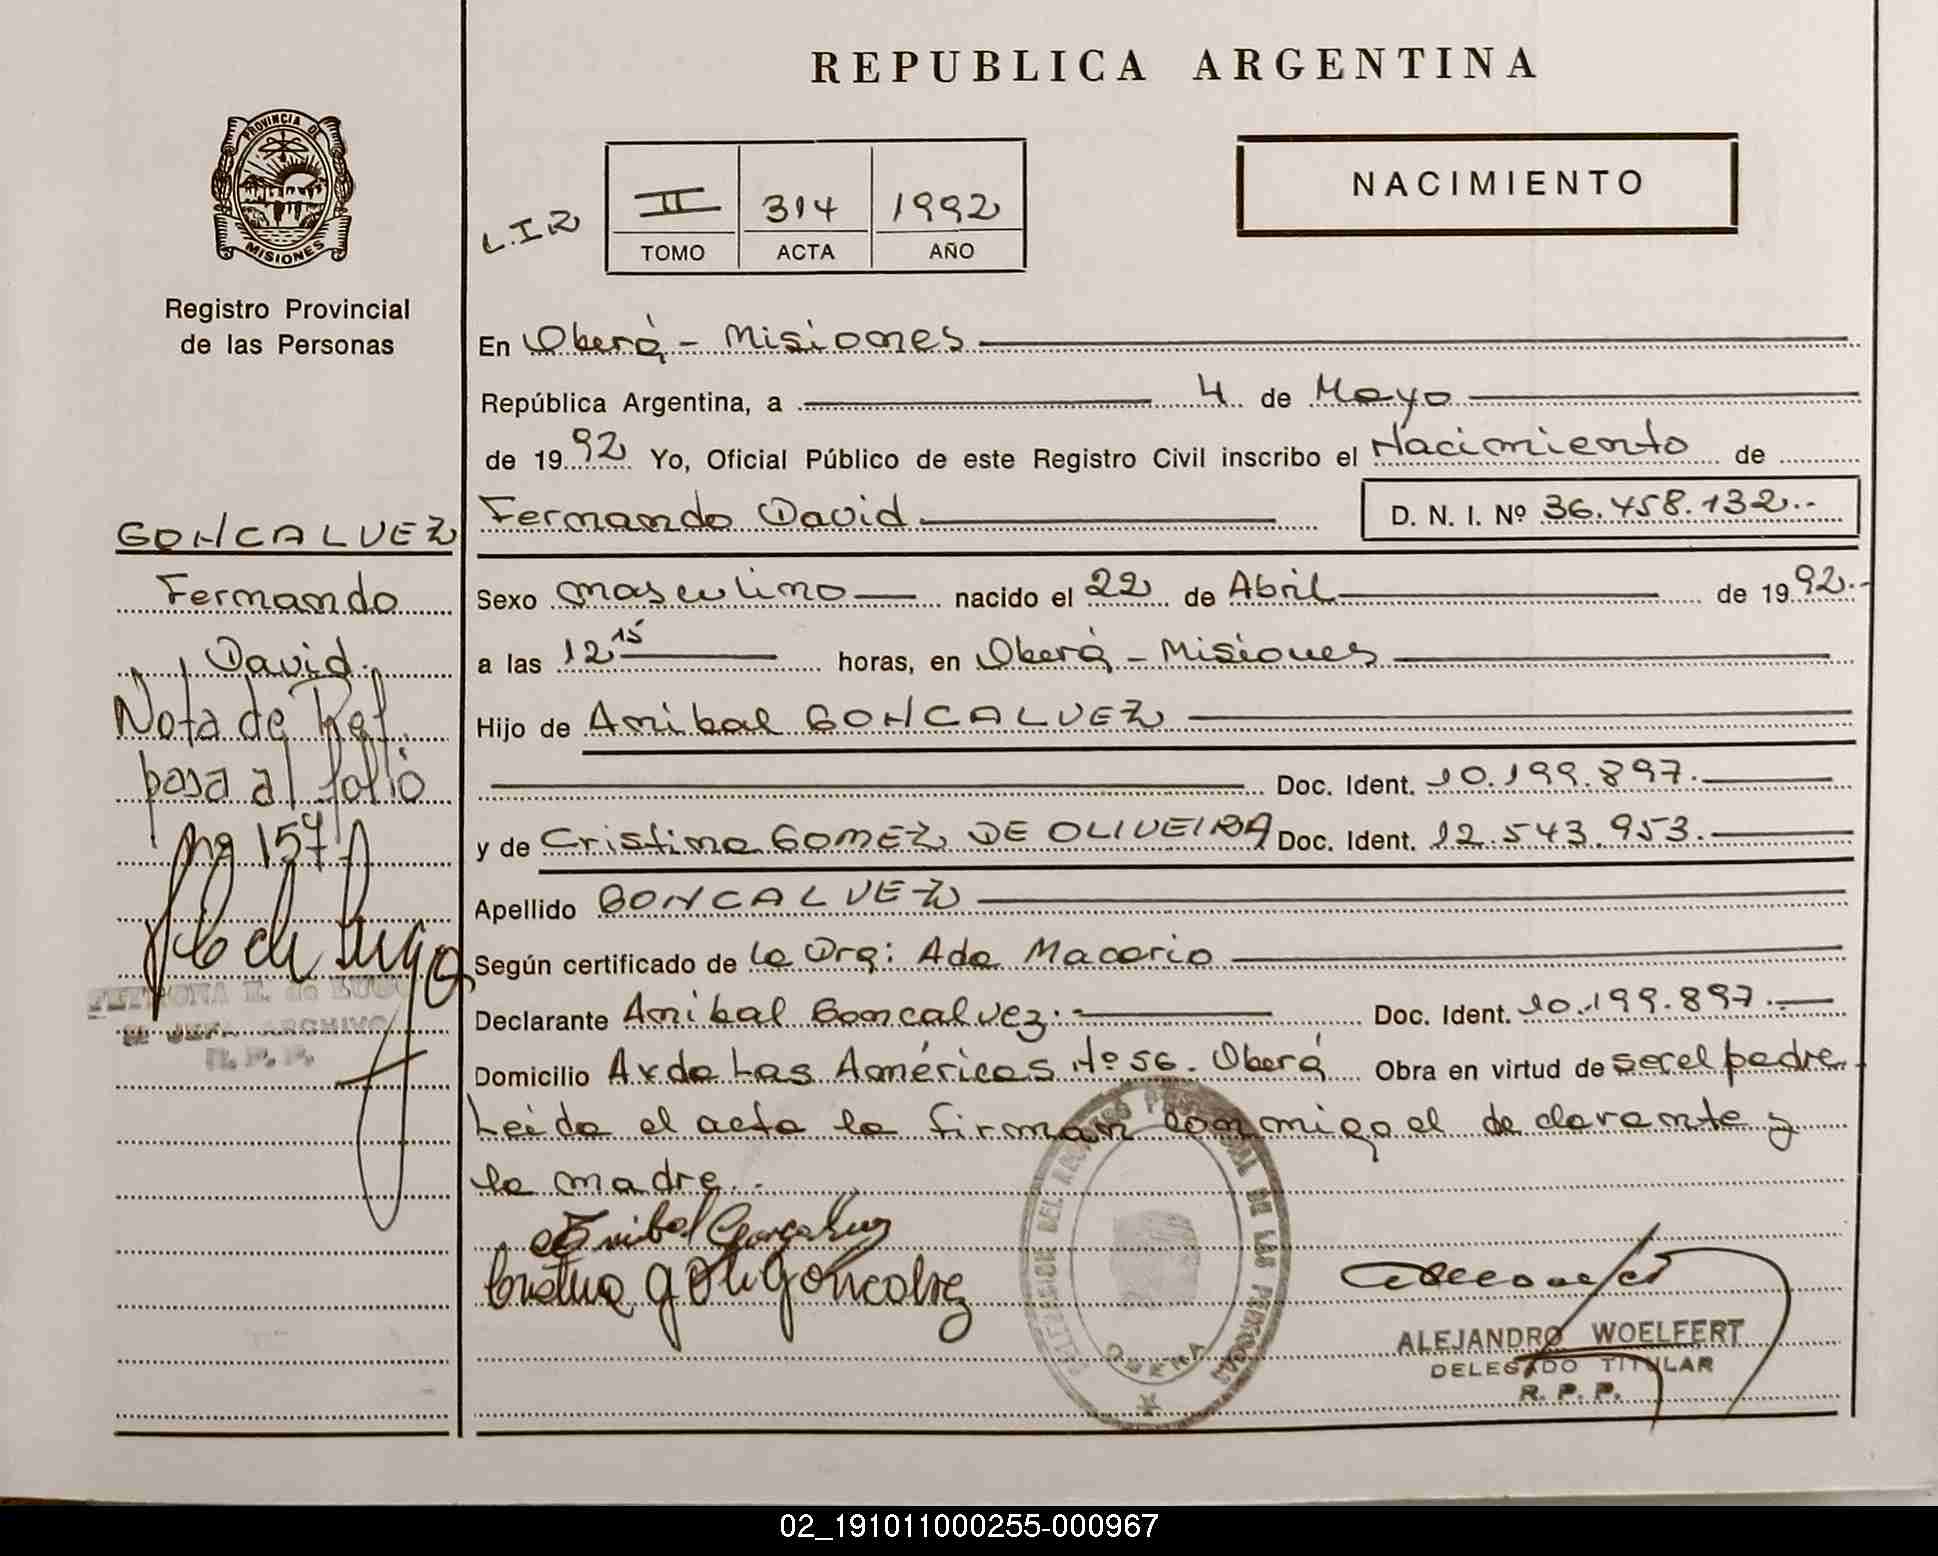 REPUBLICA ARGENTINA
PROVINCIA DE
MISIONES
Registro Provincial
de las Personas
L.I.R
II 314 1992
TOMO ACTA AÑO
NACIMIENTO
En Oberá - Misiones
República Argentina, a 4 de Mayo
de 1992 Yo, Oficial Público de este Registro Civil inscribo el Nacimiento de
Fernando David D. N. I. Nº 36.458.132.-
Sexo masculino nacido el 22 de Abril de 1992.-
a las 12 15 horas, en Oberá - Misiones
Hijo de Anibal GONCALVEZ
Doc. Ident. 10.199.897.
y de Cristina GOMEZ DE OLIVEIRA Doc. Ident. 12.543.953.
Apellido GONCALVEZ
Según certificado de la Dra: Ada Macorio
Declarante Anibal Goncalvez.- Doc. Ident. 10.199.897.
Domicilio Avda Las Américas Nº 56. Oberá Obra en virtud de ser el padre.
Leída el acta la firman conmigo el declarante y
la madre.-
Anibal Gonçalvez
Cristina g Oli Goncalvez
ALEJANDRO WOELFERT
DELEGADO TITULAR
R. P. P.
OBERA
GONCALVEZ
Fernando
David.
Nota de Ref.
pasa al folio
nº 157
DE LUGO
JEFA ARCHIVO
R. P. P.
02_191011000255-000967